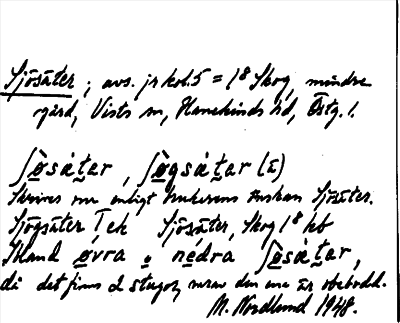 Sjösäter ; avs. jr kol. 5 = 1⁸ Skog, mindre
gård, Vists sn, Hanekinds hd, Östg. l.
ʃø̀sátar, ʃø̀gsátar (ä)
Skrives nu enligt brukarens önskan Sjösäter.
Sjögsäter T ek Sjösäter, Skog 1⁸ kb
Ibland øvra o nedra ʃøsátar,
di det finns 2 stugor, varav den ena är obebodd.
M. Nordlund 1948.